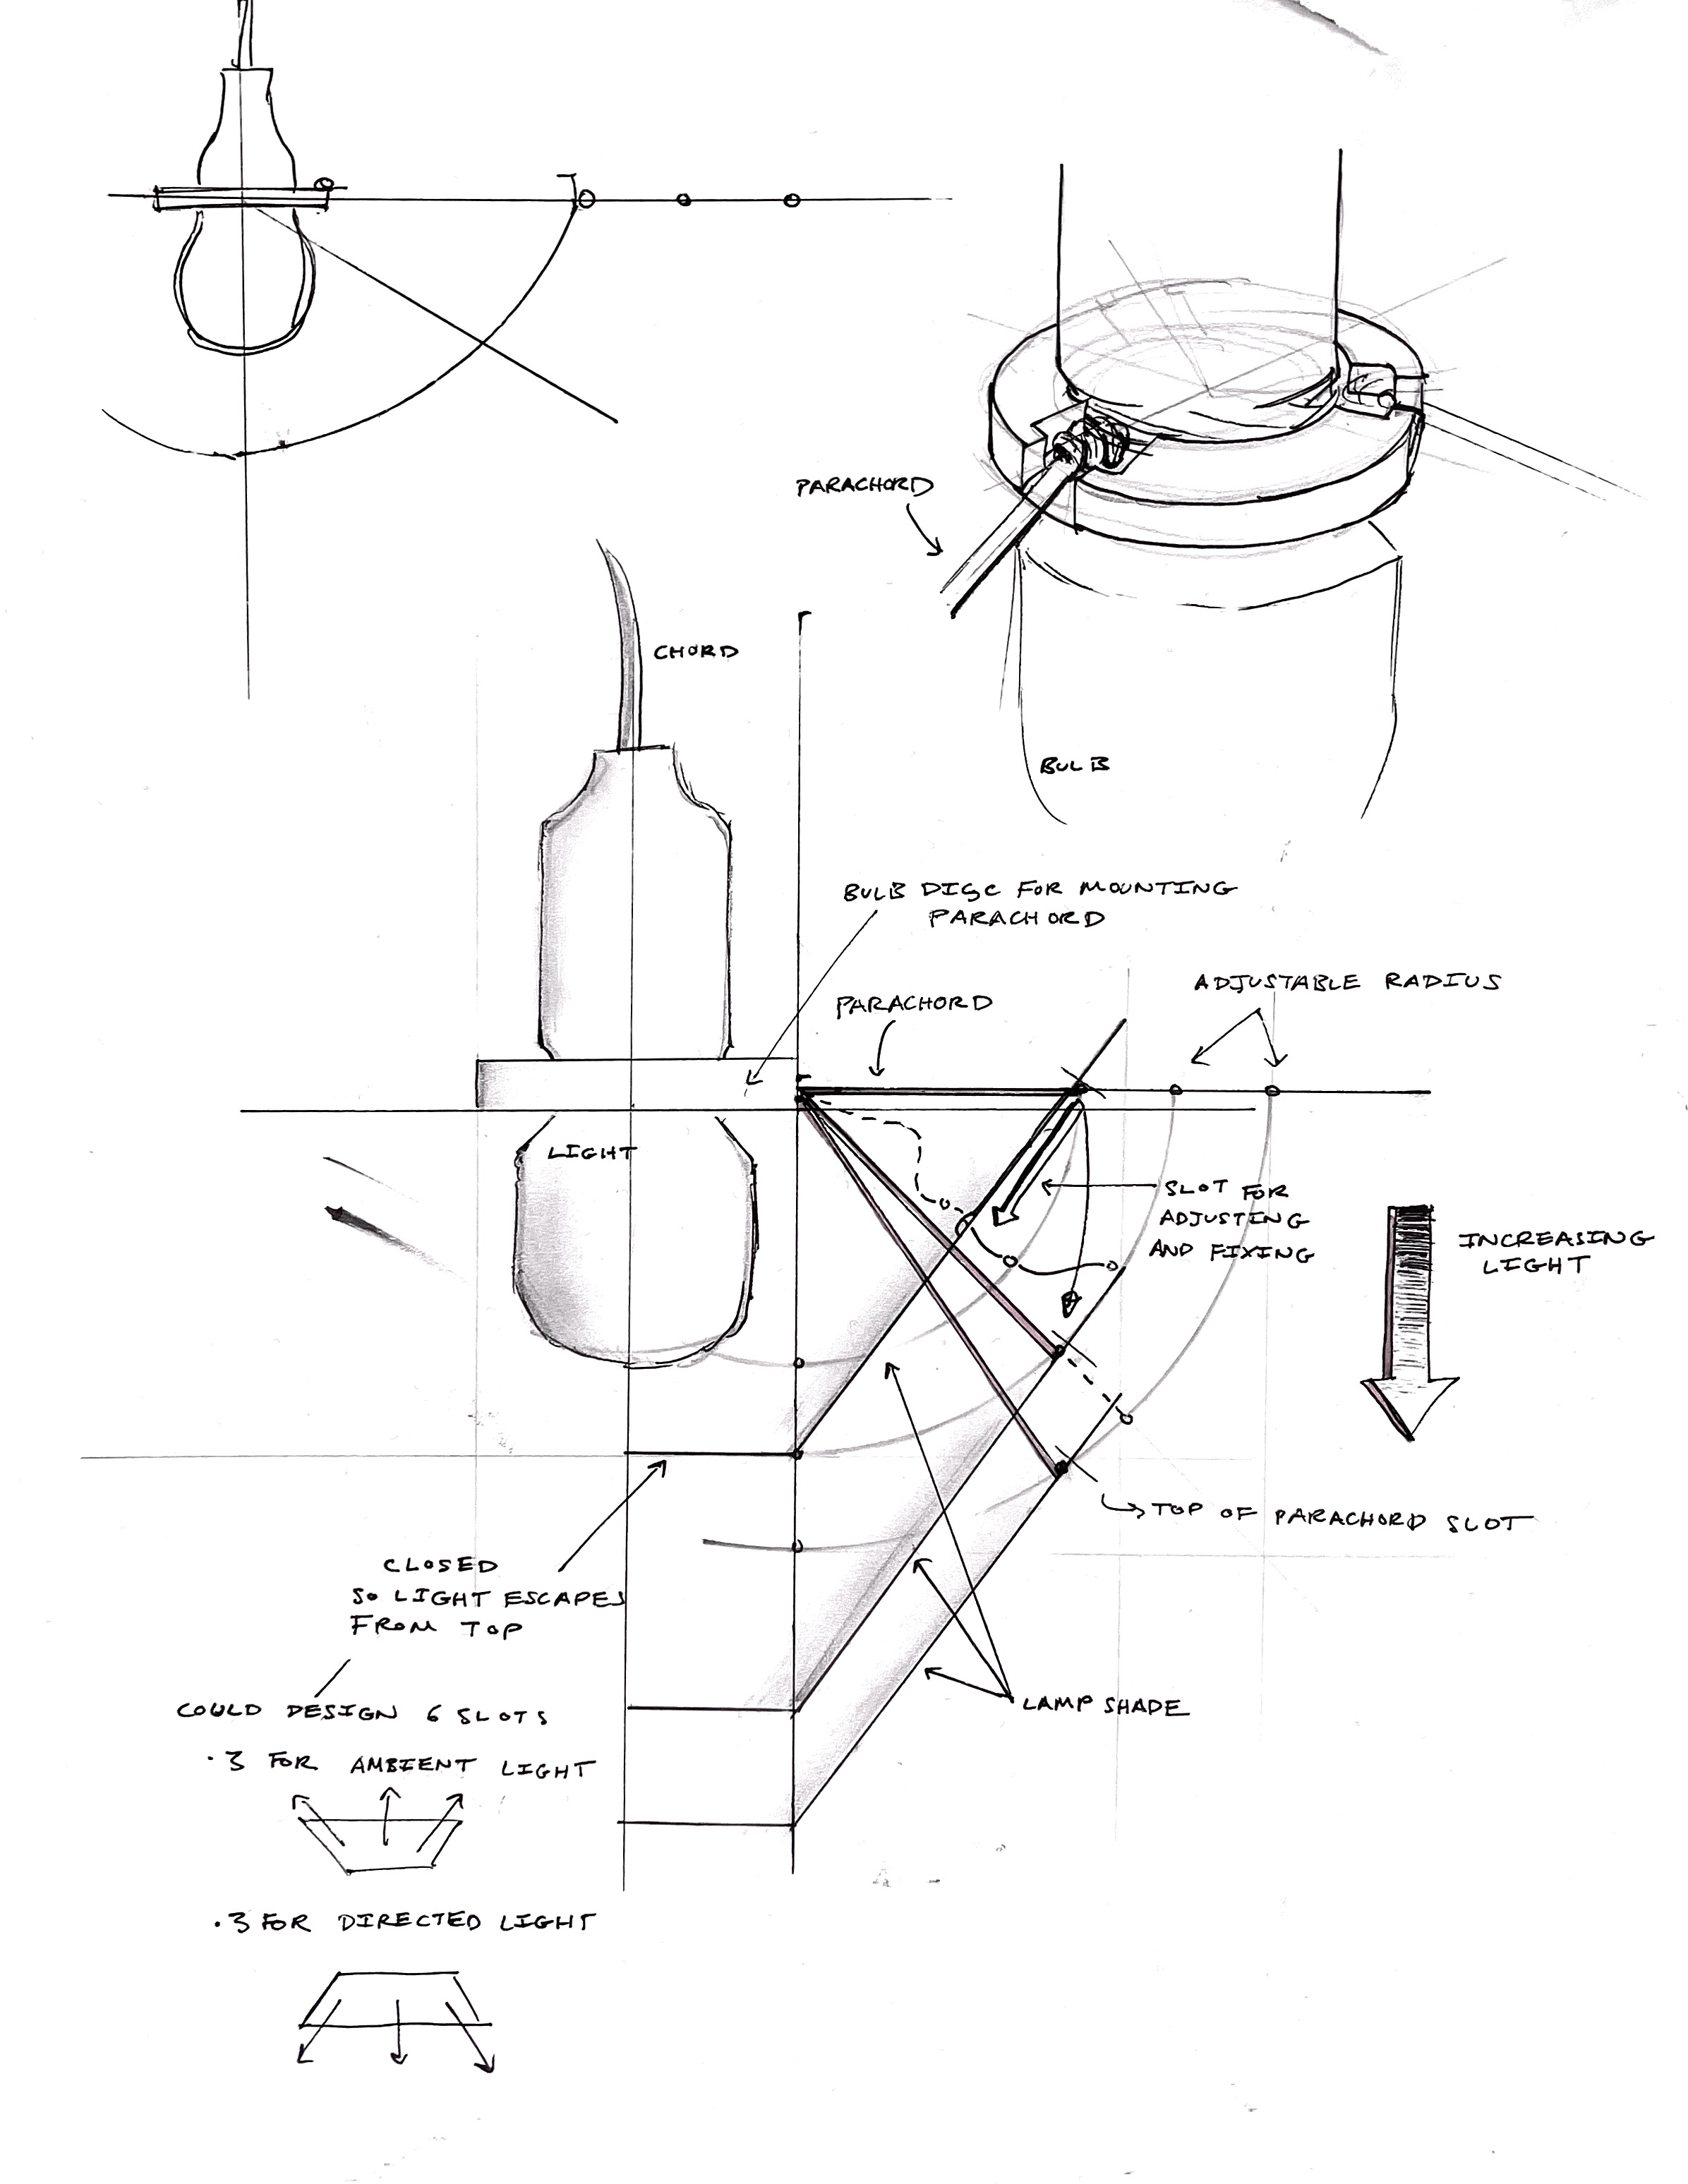 PARACHORD
CHORD
BULB
BULB DISC FOR MOUNTING
PARACHORD
PARACHORD
ADJUSTABLE RADIUS
LIGHT
SLOT FOR
ADJUSTING
AND FIXING
INCREASING
LIGHT
TOP OF PARACHORD SLOT
CLOSED
SO LIGHT ESCAPES
FROM TOP
LAMP SHADE
COULD DESIGN 6 SLOTS
·3 FOR AMBIENT LIGHT
·3 FOR DIRECTED LIGHT